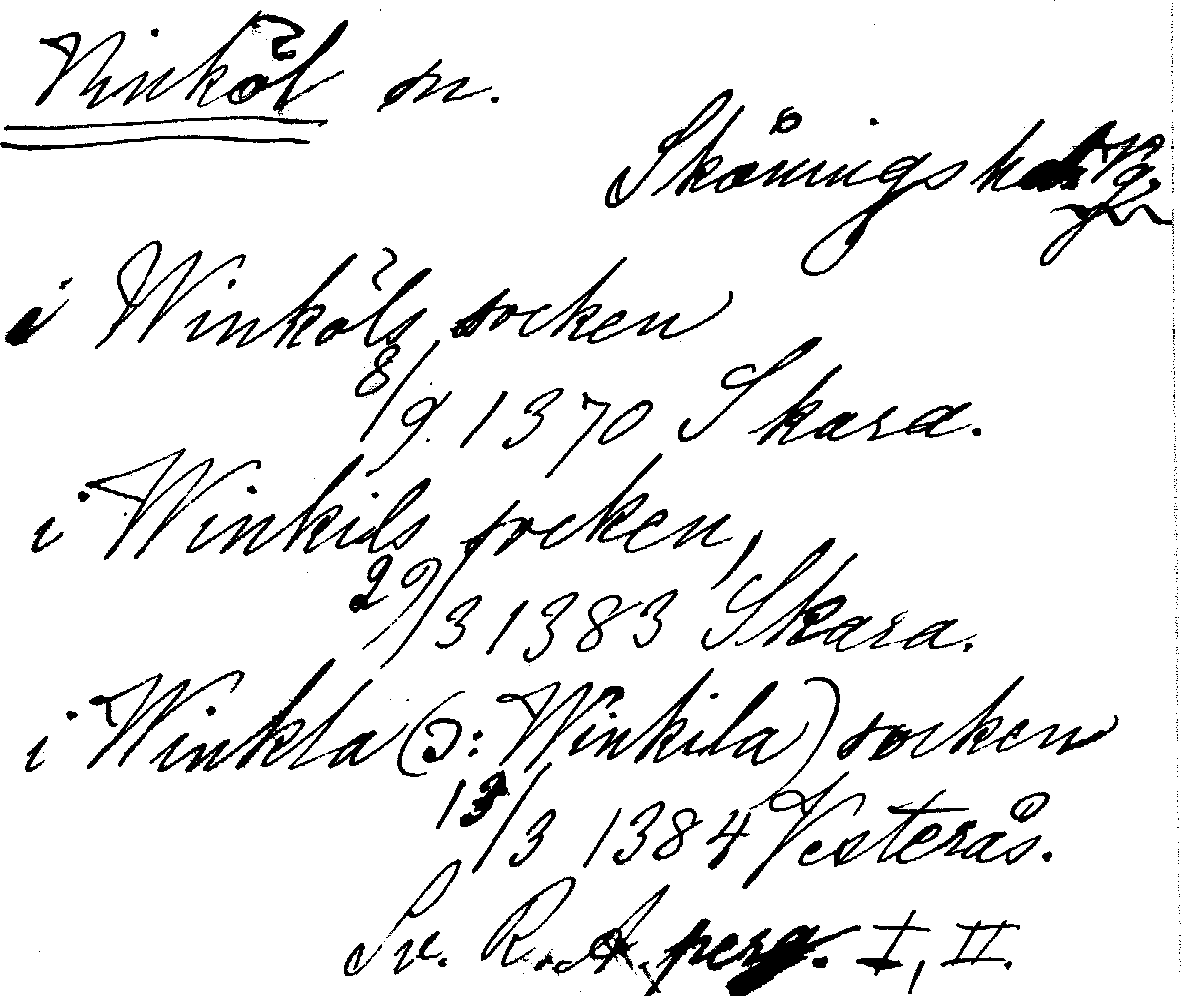 Vinköl sn.
Skånings hd. Vg.
i Winköls socken
8/9 1370 Skara.
i Winkils socken,
29/3 1383 Skara.
i Winkla (ɔ: Winkila) socken
13/3 1384 Vesterås.
Sv. R. A. perg. I, II.